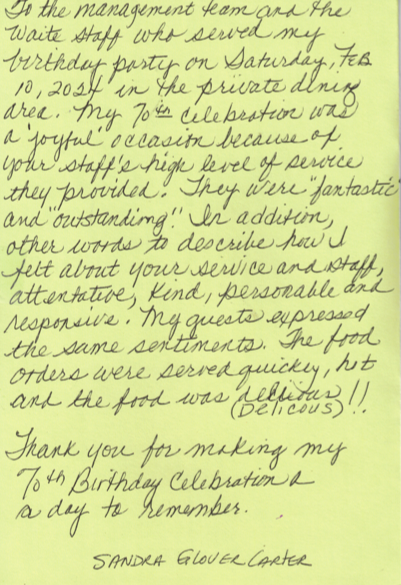 To the management team and the
Waite Staff who served my
birthday party on Saturday, Feb
10, 2024 in the private dining
area. My 70th celebration was
a 'joyful' occasion because of
your staff's high level of service
they provided. They were "fantastic"
and "outstanding!" In addition,
other words to describe how I
felt about your service and staff,
attentative, kind, personable and
responsive. My guests expressed
the same sentiments. The food
orders were served quickey, hot
and the food was delicious !!
(Delicous)
Thank you for making my
70th Birthday Celebration a
a day to remember.
SANDRA GLOVER CARTER